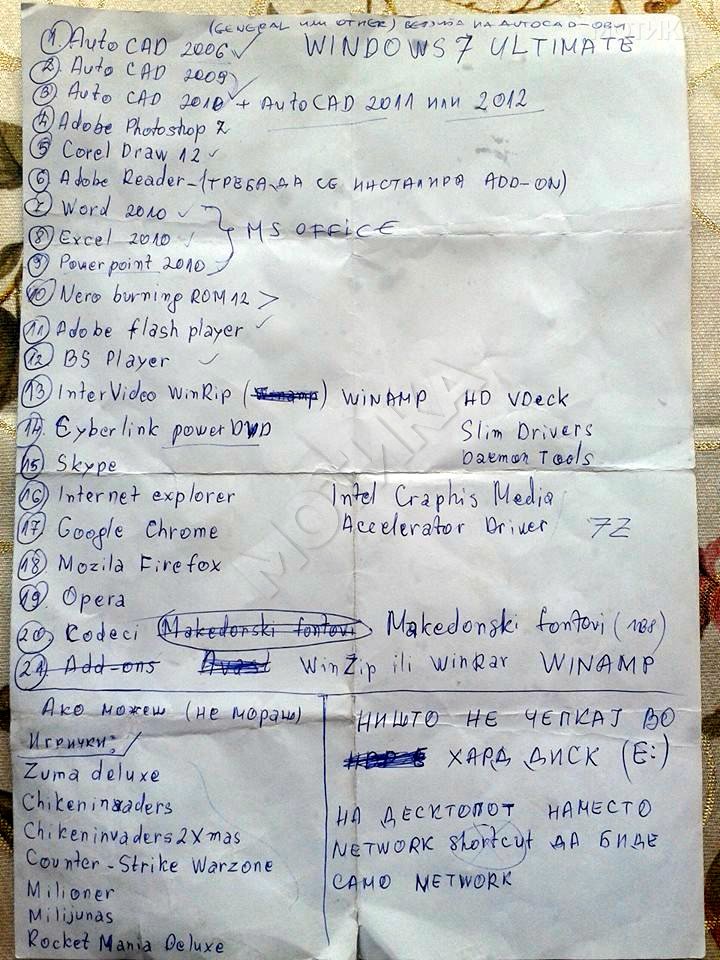 (GENERAL ИЛИ OTHER) ВЕРЗИЈА НА AUTOCAD-ОВИ
1. AutoCAD 2006 ✓ WINDOWS 7 ULTIMATE
2. Auto CAD 2009
3. Auto CAD 2010 ✓ + AutoCAD 2011 или 2012
4. Adobe Photoshop 7
5. Corel Draw 12 ✓
6. Adobe Reader-(ТРЕБА ДА СЕ ИНСТАЛИРА ADD-ON)
7. Word 2010 ✓
8. Excel 2010 ✓ } MS OFFICE
9. Powerpoint 2010
10. Nero burning ROM 12 >
11. Adobe flash player ✓
12. BS Player ✓
13. InterVideo WinRip (Winamp) WINAMP HD VDeck
14. Cyberlink powerDVD Slim Drivers
15. Skype Daemon Tools
16. Internet explorer Intel Graphis Media
17. Google Chrome Accelerator Driver 7Z
18. Mozila Firefox
19. Opera
20. Codeci Makedonski fontovi Makedonski fontovi (188)
21. Add-ons Avast WinZip ili WinRar WINAMP
Ако можеш (не мораш)
Игрички:
Zuma deluxe
Chikeninvaders
Chikeninvaders 2 Xmas
Counter-Strike Warzone
Milioner
Milijunas
Rocket Mania Deluxe
НИШТО НЕ ЧЕПКАЈ ВО
ХАРД ДИСК (E:)
НА ДЕСКТОПОТ НАМЕСТО
NETWORK shortcut ДА БИДЕ
САМО NETWORK
МОТИКА
МОТИКА